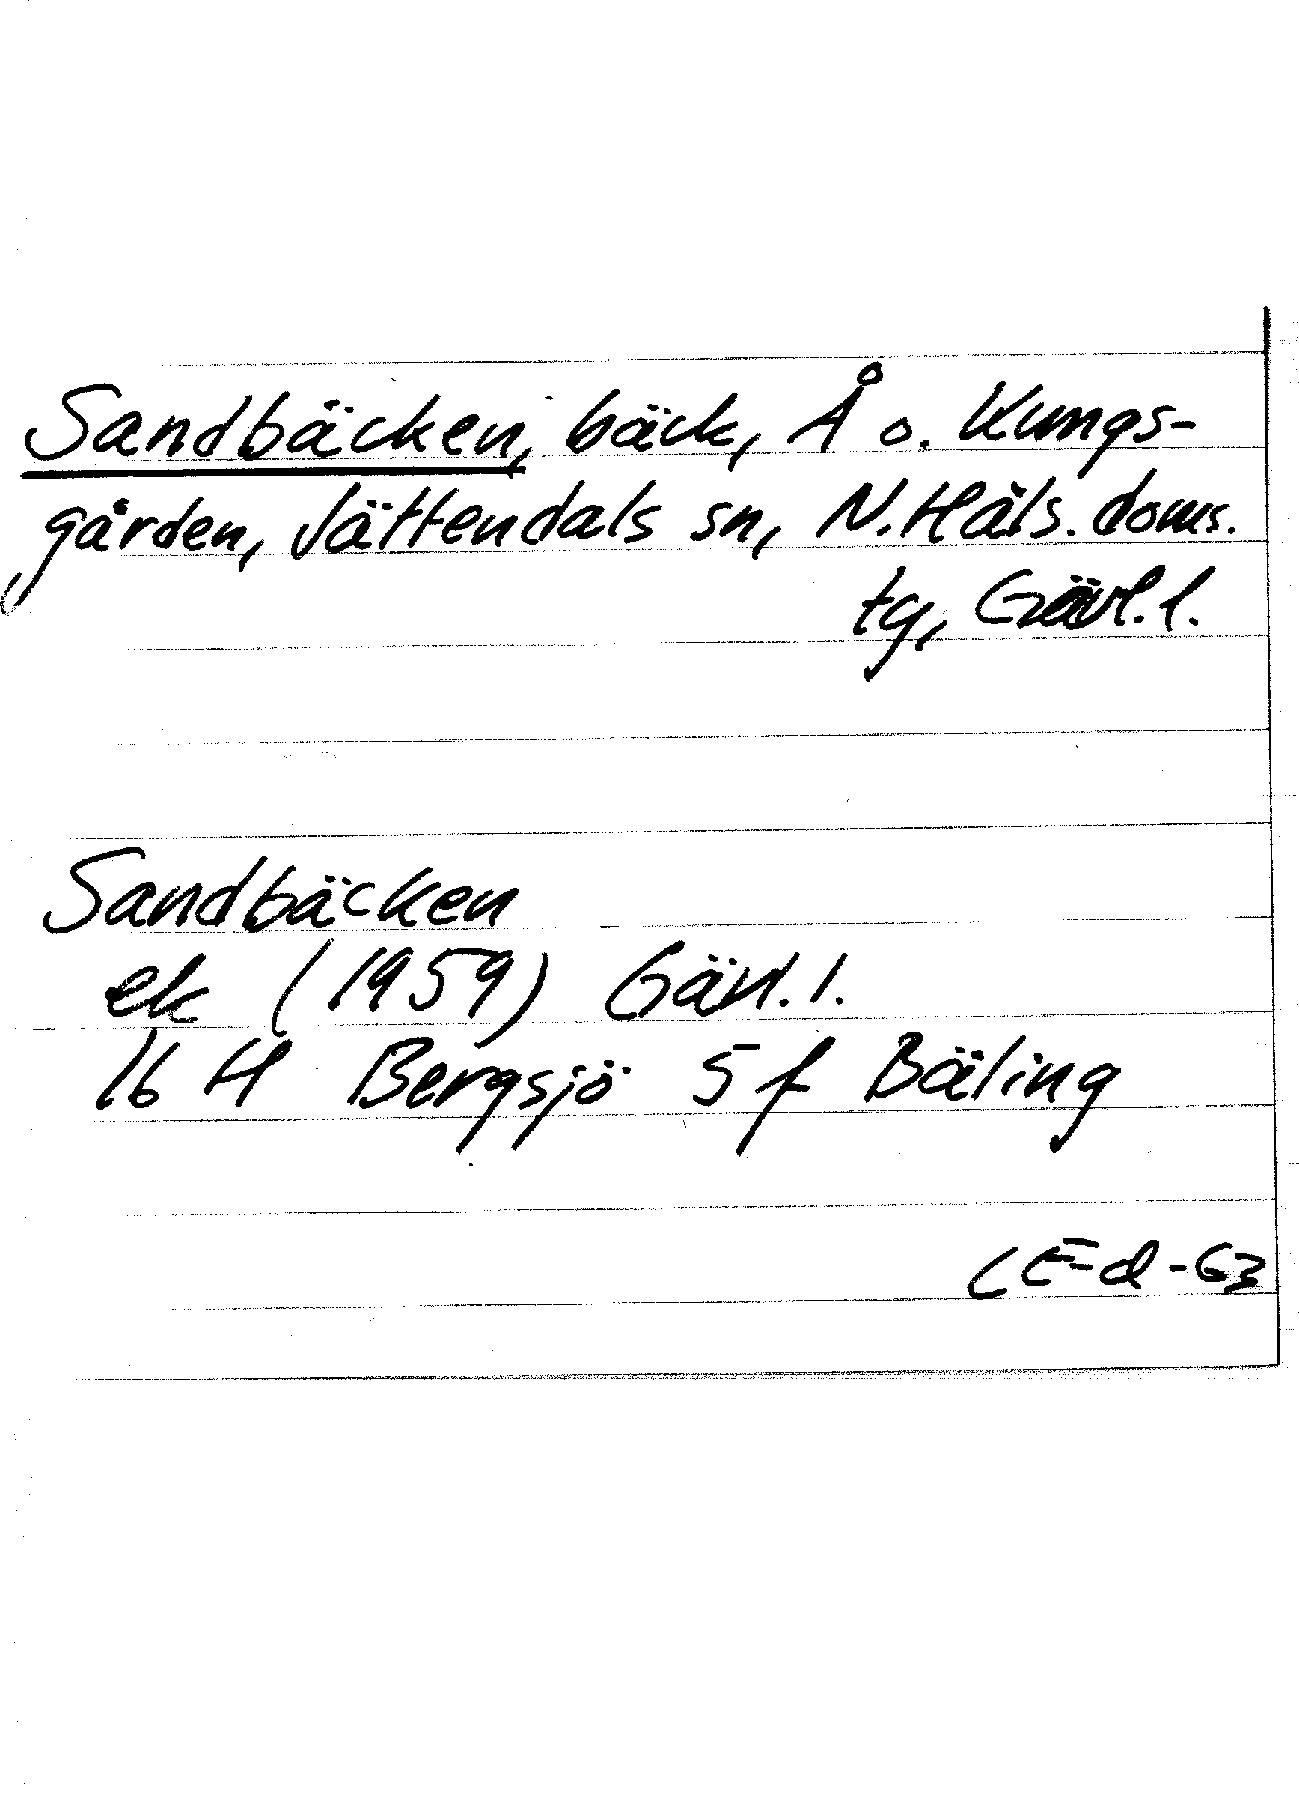 Sandbäcken, bäck, Å o. Kungs-
gården, Jättendals sn, N. Häls. doms.
tg, Gävl. l.
Sandbäcken
ek (1959) Gävl. l.
16 H Bergsjö 5 f Bäling
CE-d-63